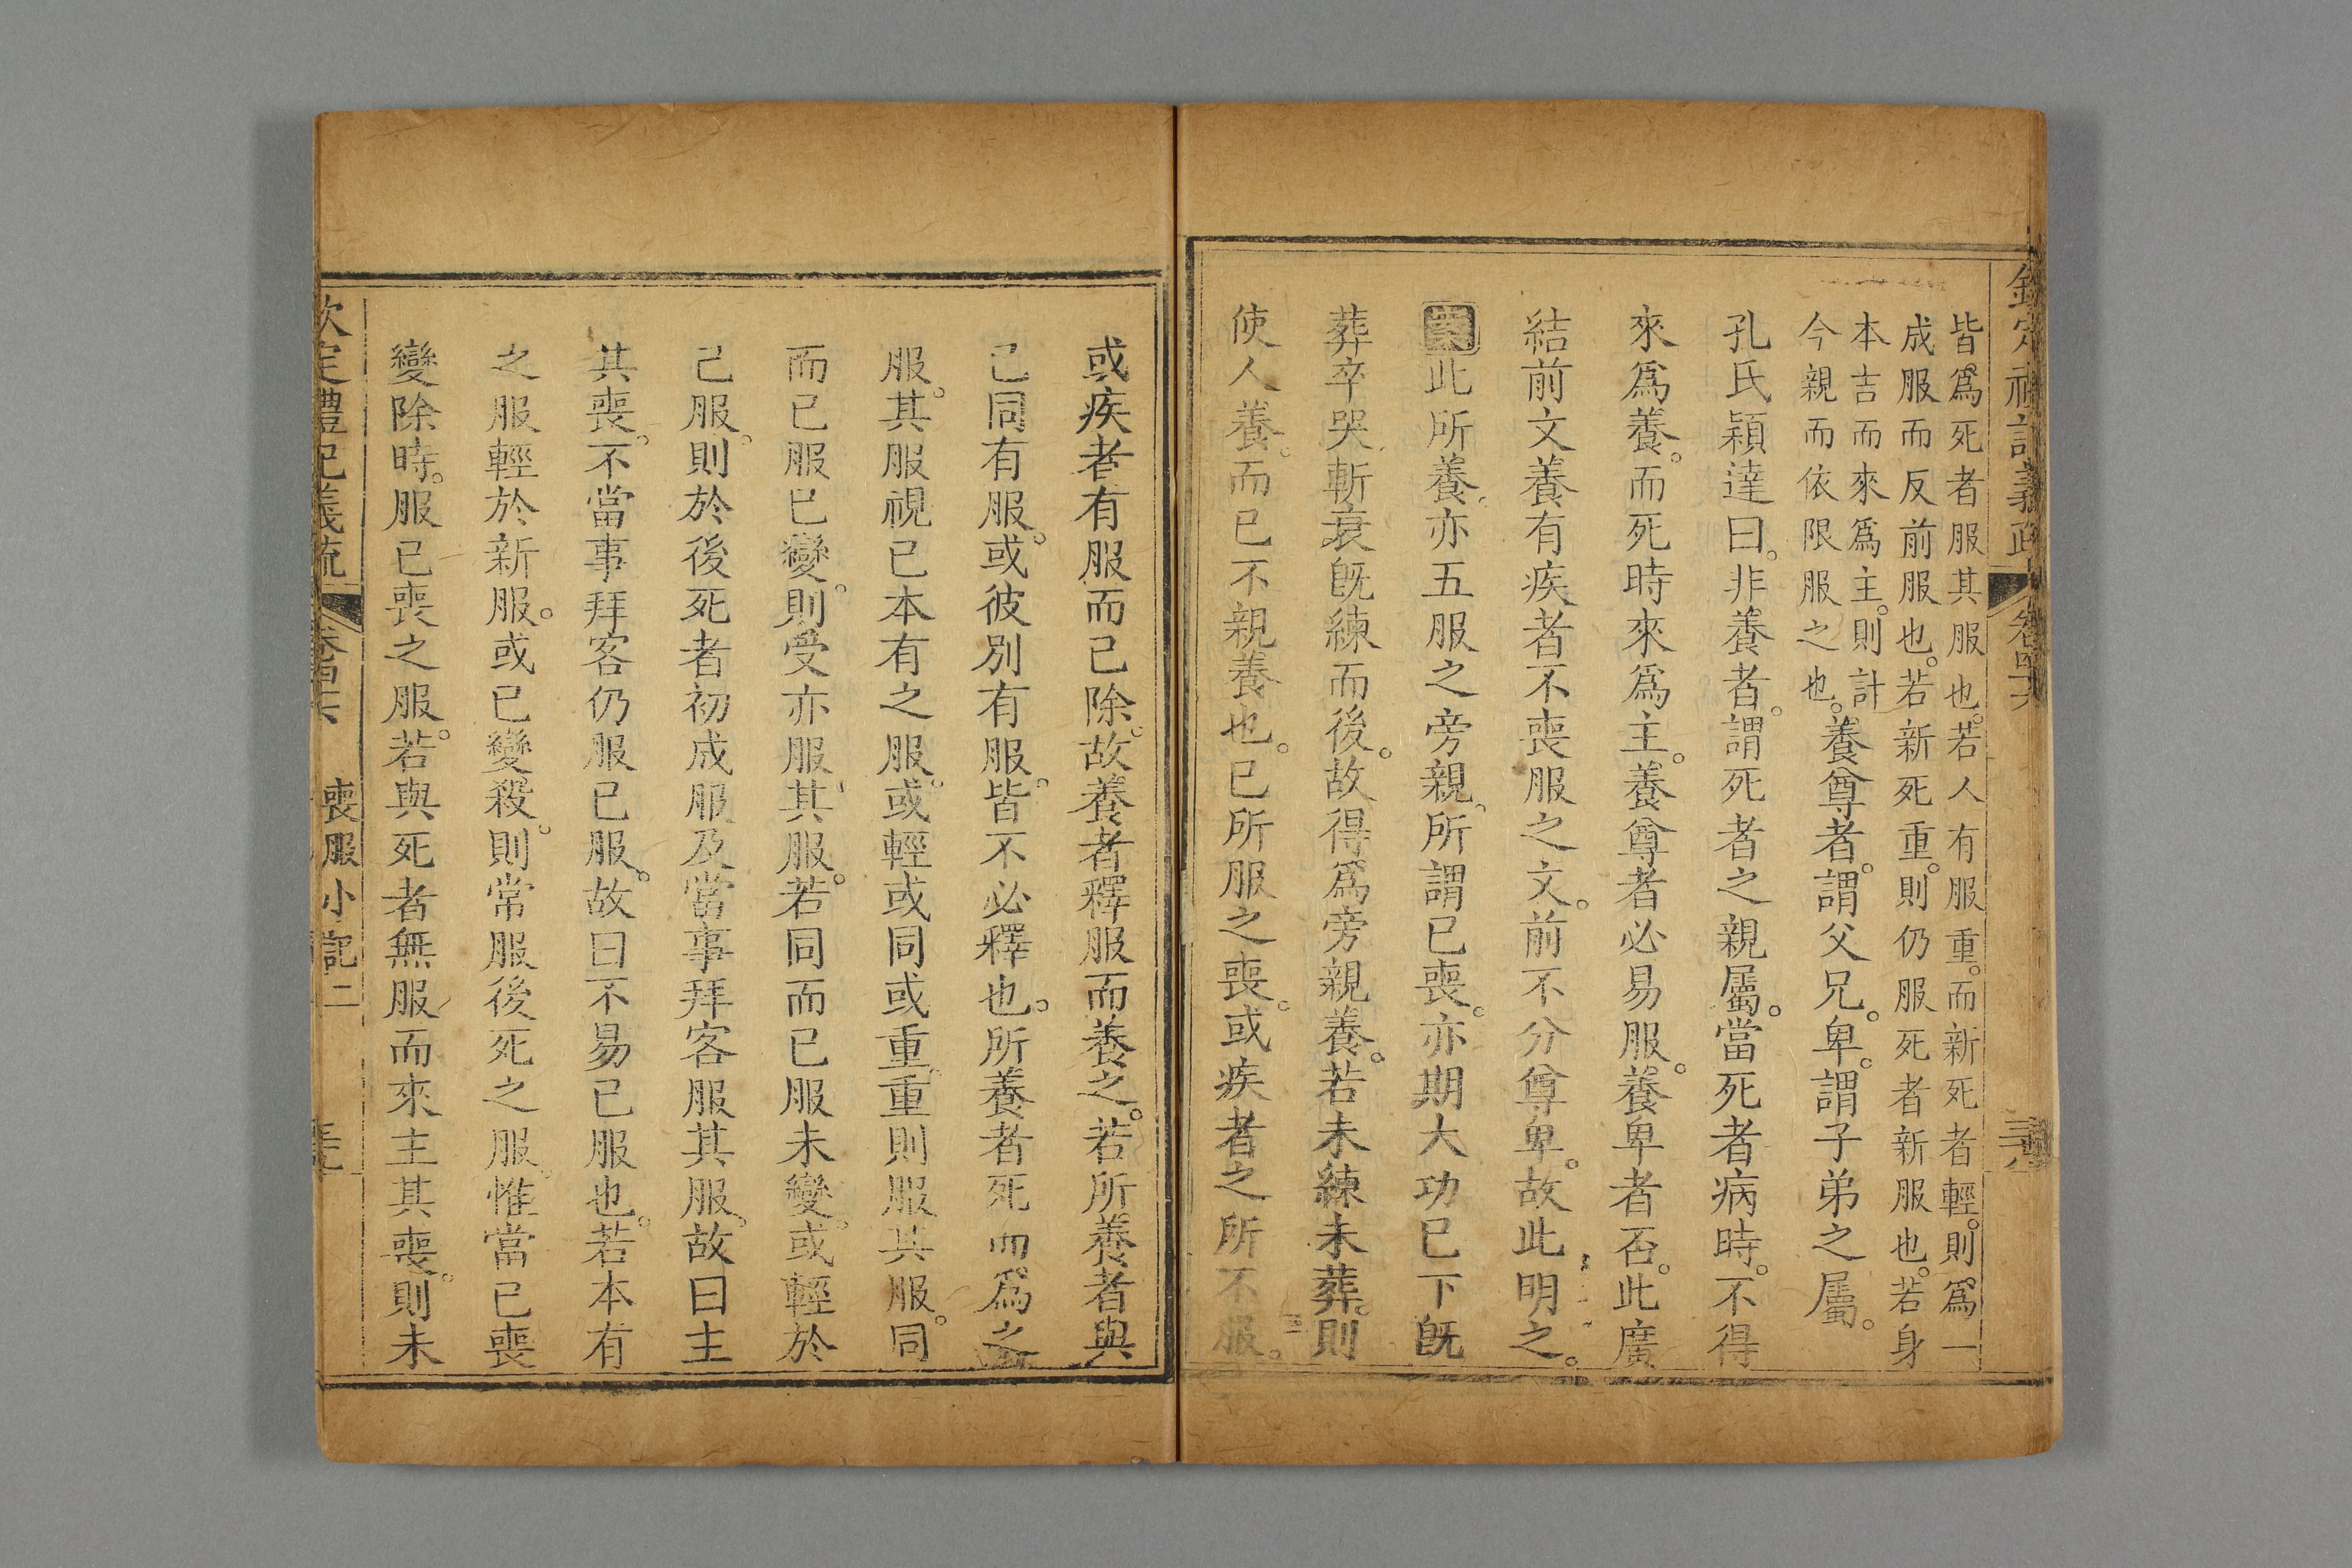 欽定禮記義疏 卷四十六 三六
皆爲死者服其服也。若人有服重。而新死者輕。則爲一
成服而反前服也。若新死重。則仍服死者新服也。若身
本吉而來爲主。則計
今親而依限服之也。養尊者。謂父兄。卑。謂子弟之屬。
孔氏穎達曰。非養者。謂死者之親屬。當死者病時。不得
來爲養。而死時來爲主。養尊者必易服。養卑者否。此廣
結前文養有疾者不喪服之文。前不分尊卑。故此明之。
案此所養亦五服之旁親。所謂已喪。亦期大功已下旣
葬卒哭斬衰旣練而後。故得爲旁親養。若未練未葬。則
使人養。而已不親養也。已所服之喪。或疾者之所不服。
或疾者有服而已除。故養者釋服而養之。若所養者與
己同有服。或彼別有服。皆不必釋也。所養者死而爲之
服。其服視已本有之服。或輕或同或重。重則服其服。同
而已服已變。則受亦服其服。若同而已服未變。或輕於
己服。則於後死者初成服及當事拜客服其服。故曰主
其喪。不當事拜客仍服已服。故曰不易已服也。若本有
之服輕於新服。或已變殺。則常服後死之服。惟當已喪
變除時。服已喪之服。若與死者無服而來主其喪。則未
欽定禮記義疏 卷四十六 喪服小記二